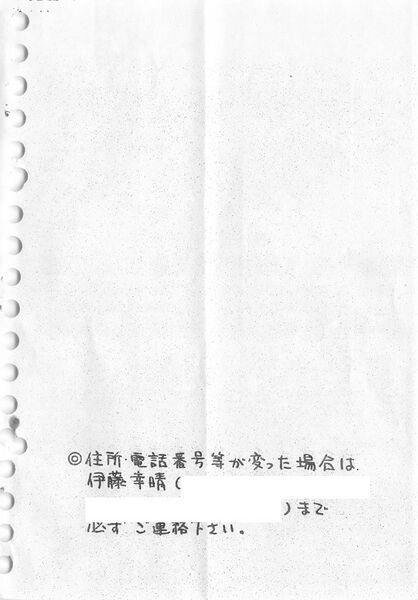 ◎住所・電話番号等が変った場合は
伊藤幸晴(
)まで
必ずご連絡下さい。